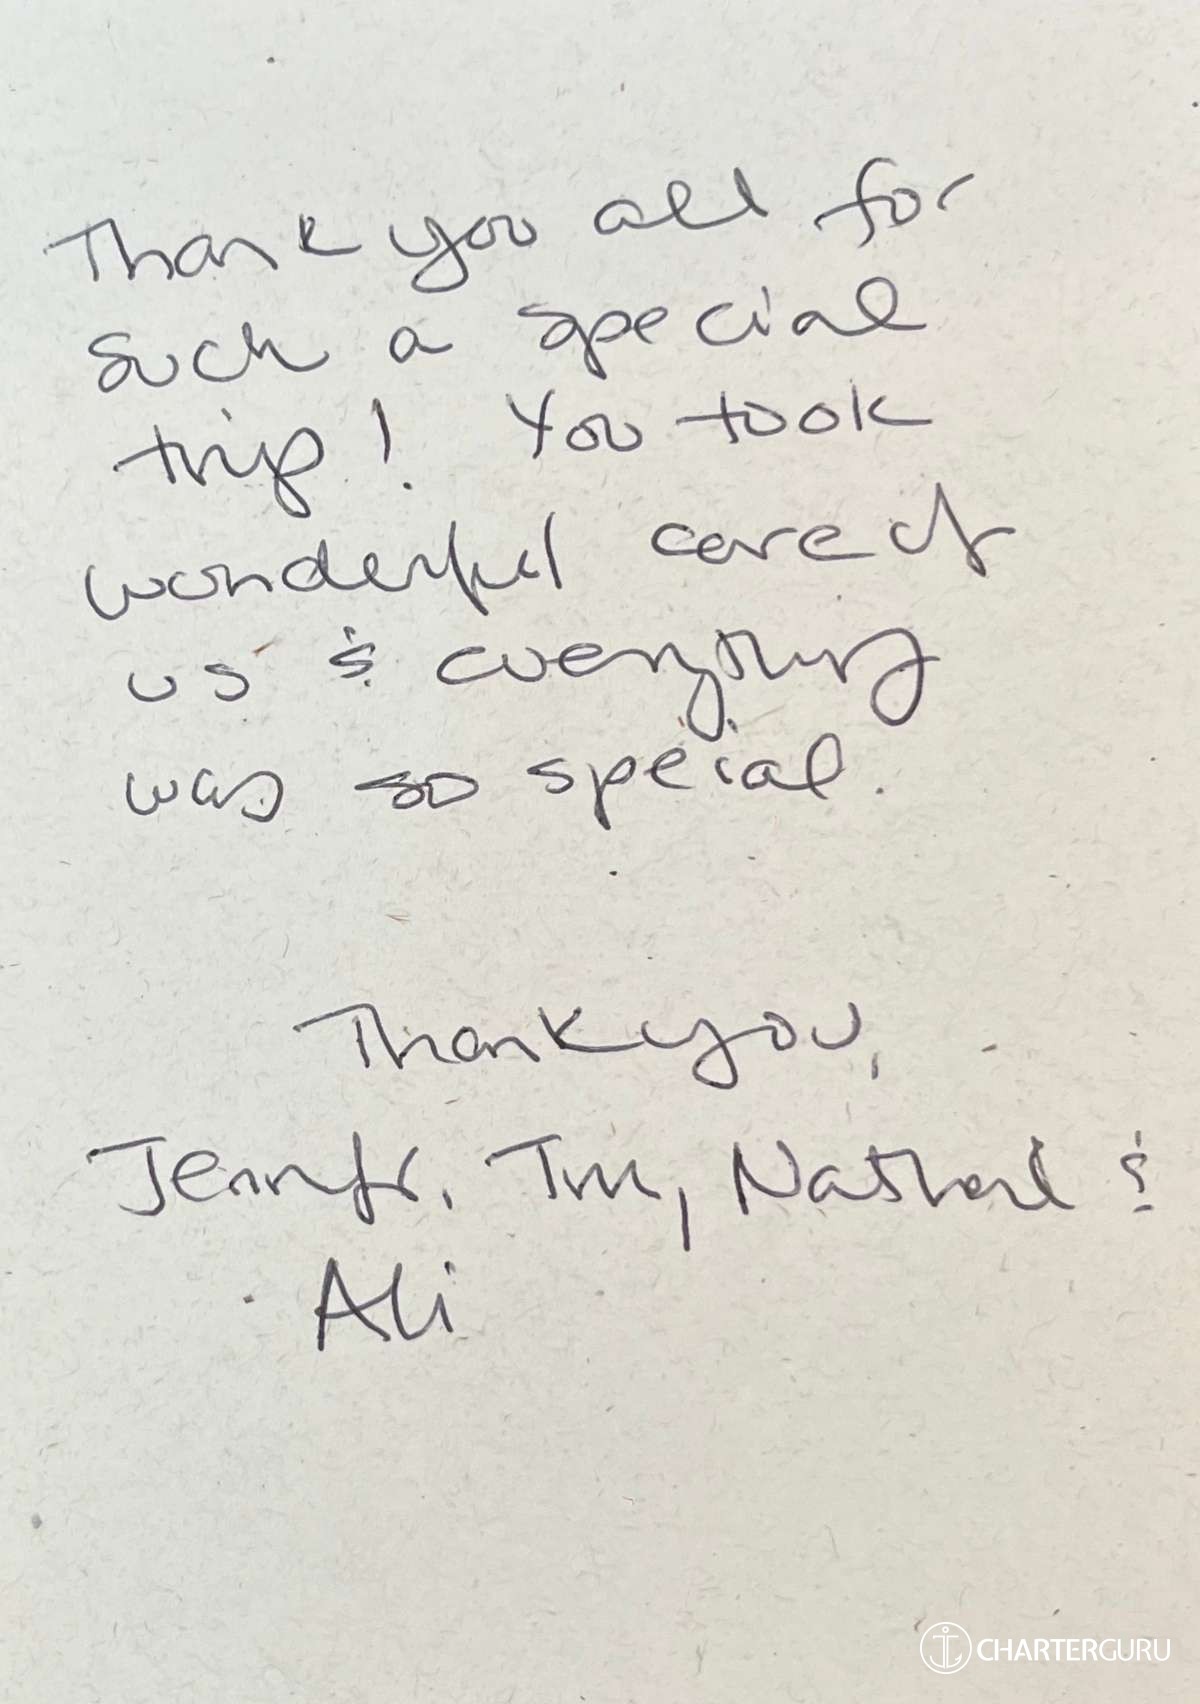 Thank you all for
such a special
trip! You took
wonderful care of
us & everything
was so special.
Thank you,
Jennifer, Tim, &
Ali
CHARTERGURU